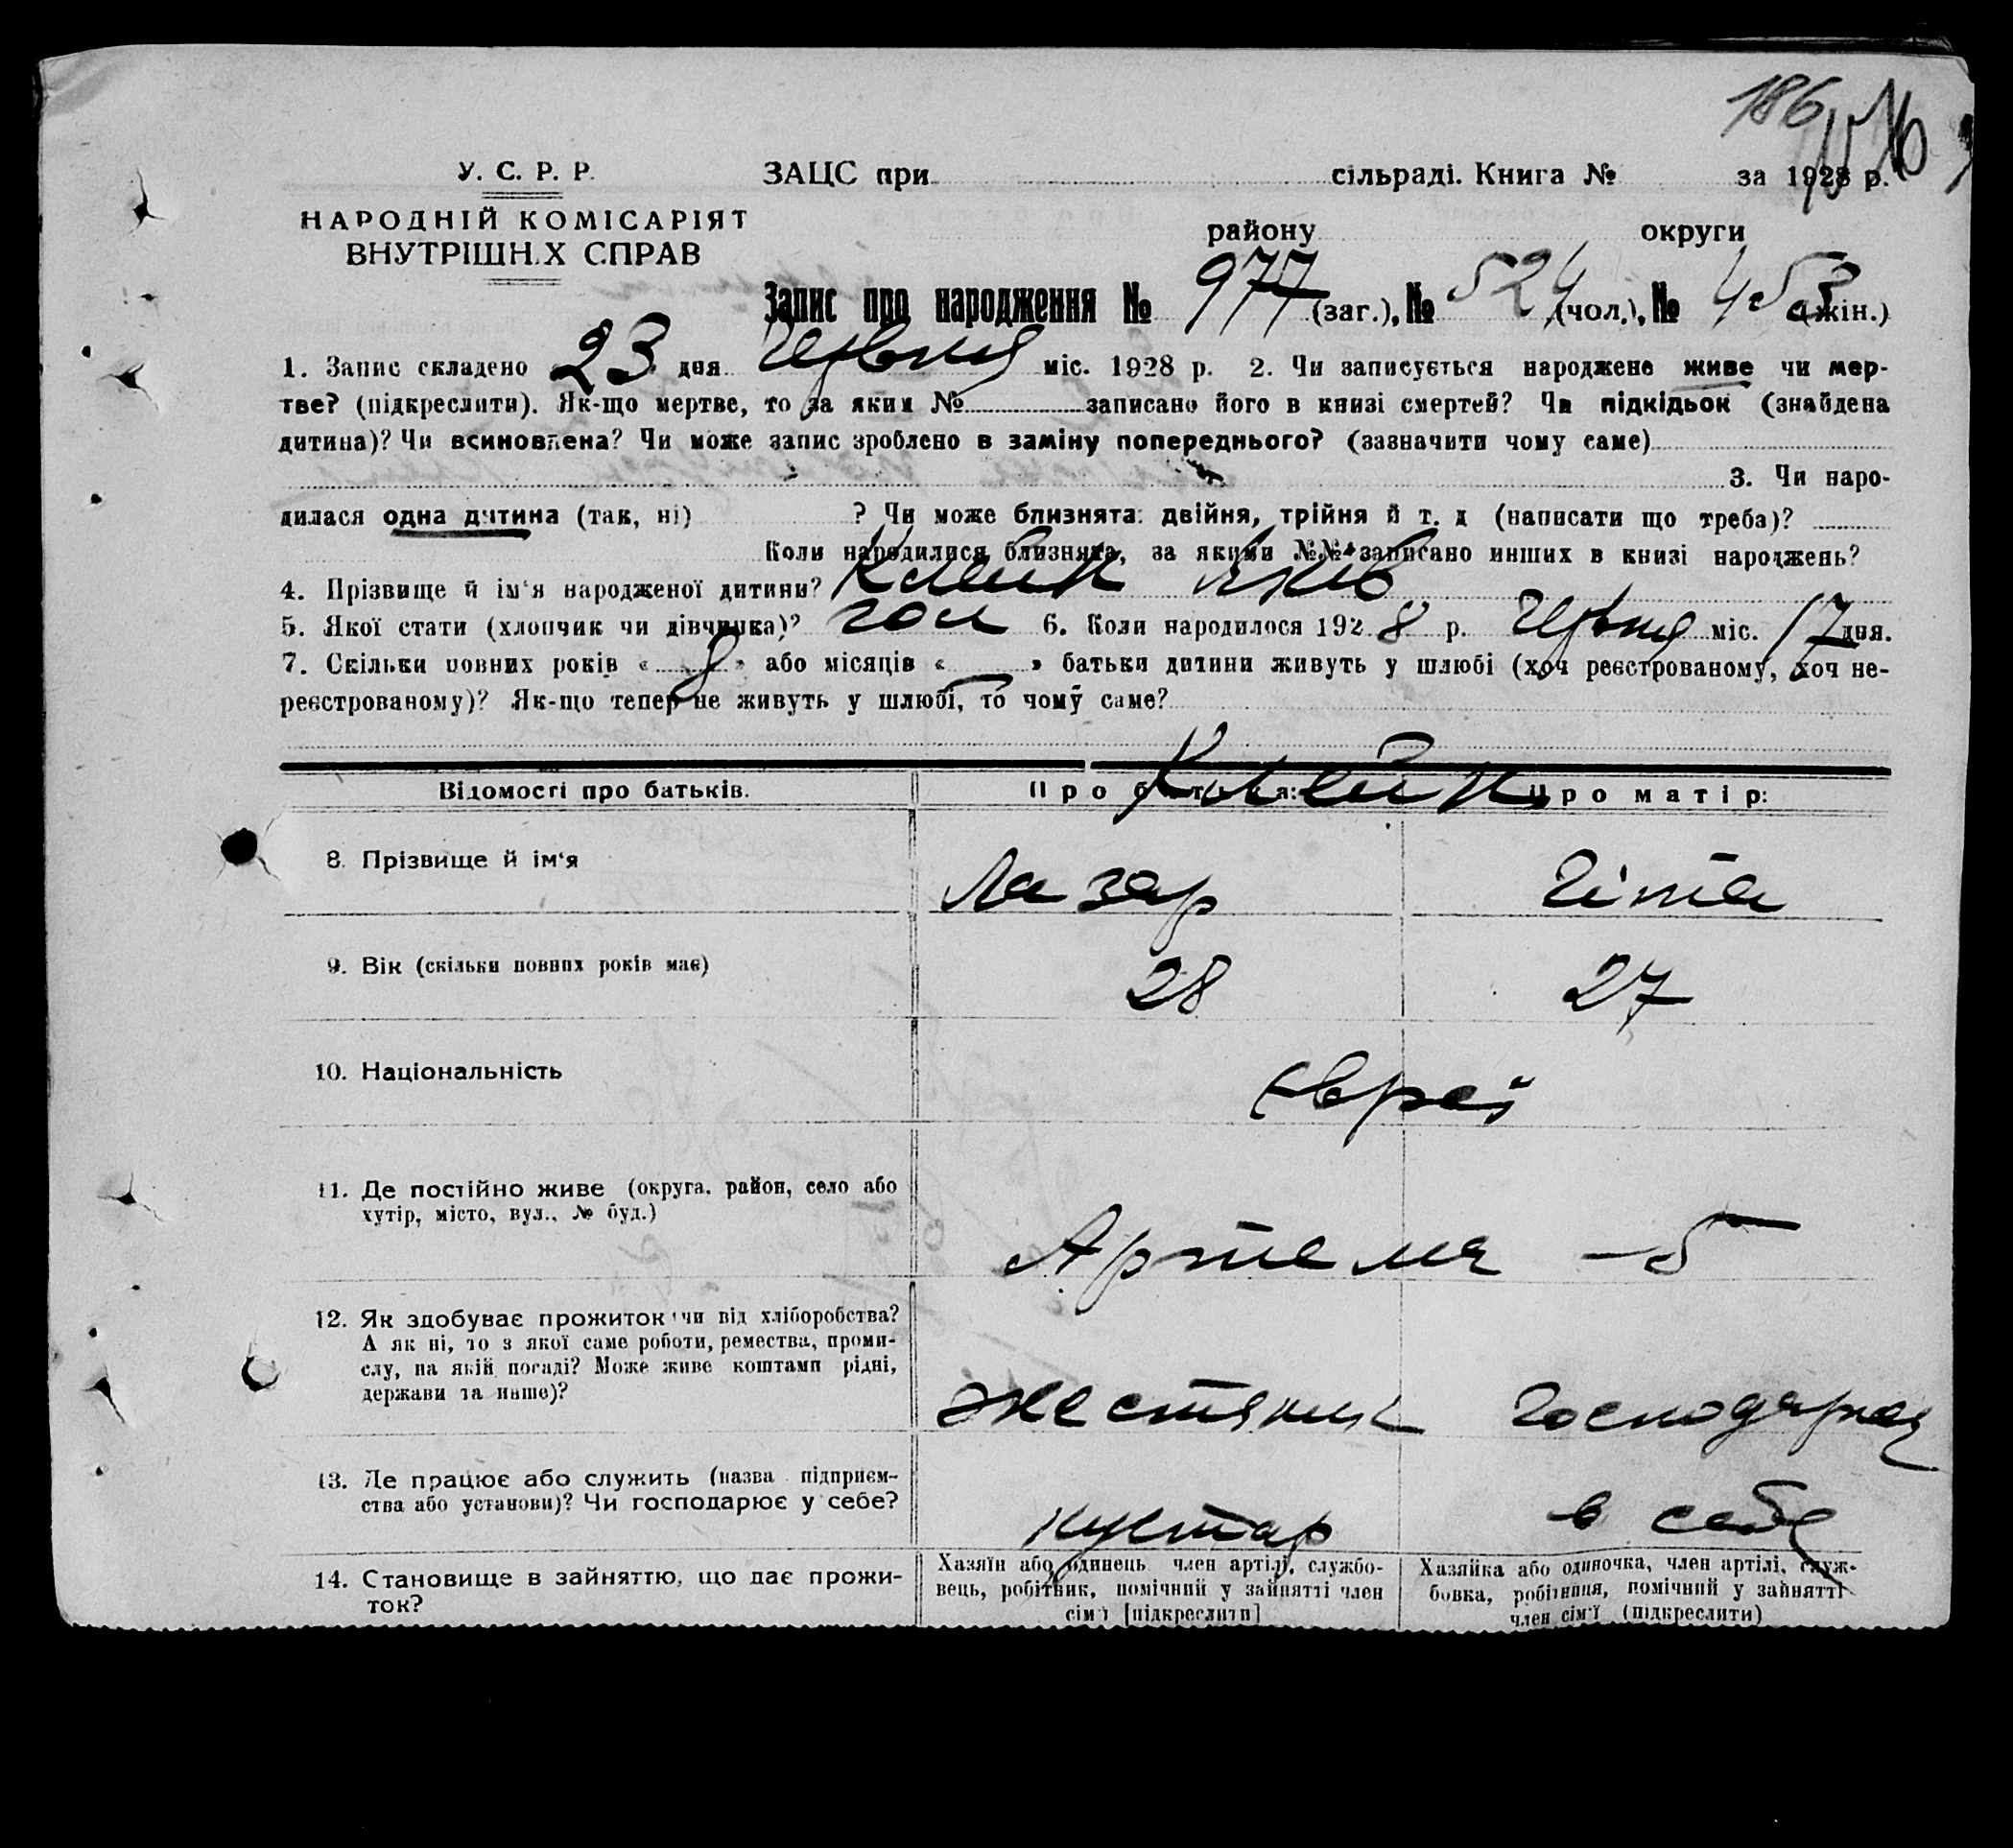 186
У. С. Р. Р.
ЗАЦС при сільраді. Книга № за 1928 р.
НАРОДНІЙ КОМІСАРІЯТ
ВНУТРІШНІХ СПРАВ
району округи
Запис про народження № 977 (заг.), № 524 (чол.), № 453 (жін.)
1. Запис складено 23 дня Червня міс. 1928 р. 2. Чи записується народжене живе чи мер-
тве? (підкреслити). Як-що мертве, то за яким № записано його в книзі смертей? Чи підкідьок (знайдена
дитина)? Чи всиновлена? Чи може запис зроблено в заміну попереднього? (зазначити чому саме)
3. Чи наро-
дилася одна дитина (так, ні) ? Чи може близнята: двійня, трійня й т. д (написати що треба)?
Коли народилися близнята, за якими №№ записано инших в книзі народжень?
4. Прізвище й ім'я народженої дитини? Клейн Яків
5. Якої статі (хлопчик чи дівчинка)? чол 6. Коли народилося 1928 р. Червня міс. 17 дня.
7. Скільки повних років « » або місяців « » батьки дитини живуть у шлюбі (хоч реєстрованому, хоч не-
реєстрованому)? Як-що тепер не живуть у шлюбі, то чому саме?
Відомості про батьків. Про батька: Про матір:
Клейн
8. Прізвище й ім'я Лазар Гітя
9. Вік (скільки повних років має) 28 27
10. Національність Євреї
11. Де постійно живе (округа, район, село або
хутір, місто, вул., № буд.)
Артема – 5
12. Як здобуває прожиток чи від хліборобства?
А як ні, то з якої саме роботи, ремества, проми-
слу, на якій посаді? Може живе коштами рідні,
держави та инше)?
жестяник Господарка
13. Де працює або служить (назва підприєм-
ства або установи)? Чи господарює у себе?
кустар в себе
14. Становище в зайняттю, що дає прожи-
ток?
Хазяїн або одинець член артілі, службо-
вець, робітник, помічний у зайнятті член
сім'ї [підкреслити]
Хазяйка або одиночка, член артілі, служ-
бовка, робітниця, помічний у зайнятті
член сім'ї (підкреслити)